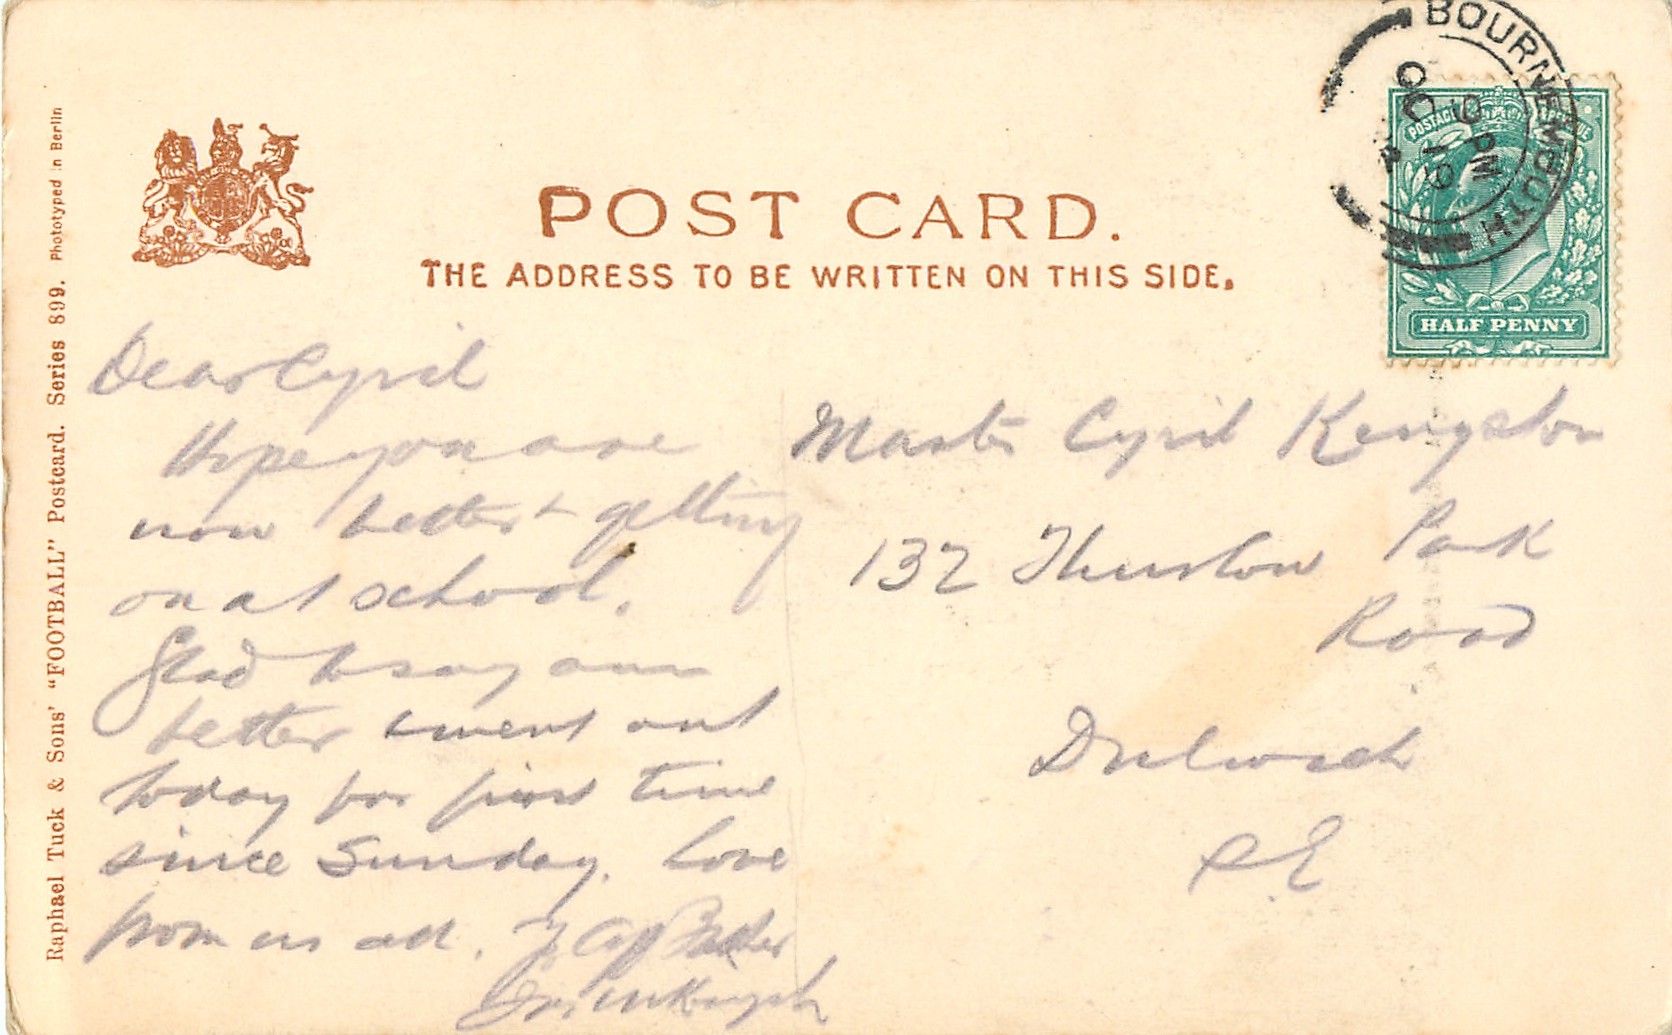 BOURNEMOUTH
9 PM
OC 19
4
POSTAGE
HALF PENNY
POST CARD.
THE ADDRESS TO BE WRITTEN ON THIS SIDE.
Raphael Tuck & Sons' "FOOTBALL" Postcard. Series 899. Photo­typed in Berlin
Dear Cyril
Hope you are
now better + getting
on at school.
Glad to say am
better & went out
today for first time
since Sunday. Love
from us all.
Master Cyril Kingston
132 Thurlow Park
Road
Dulwich
SE